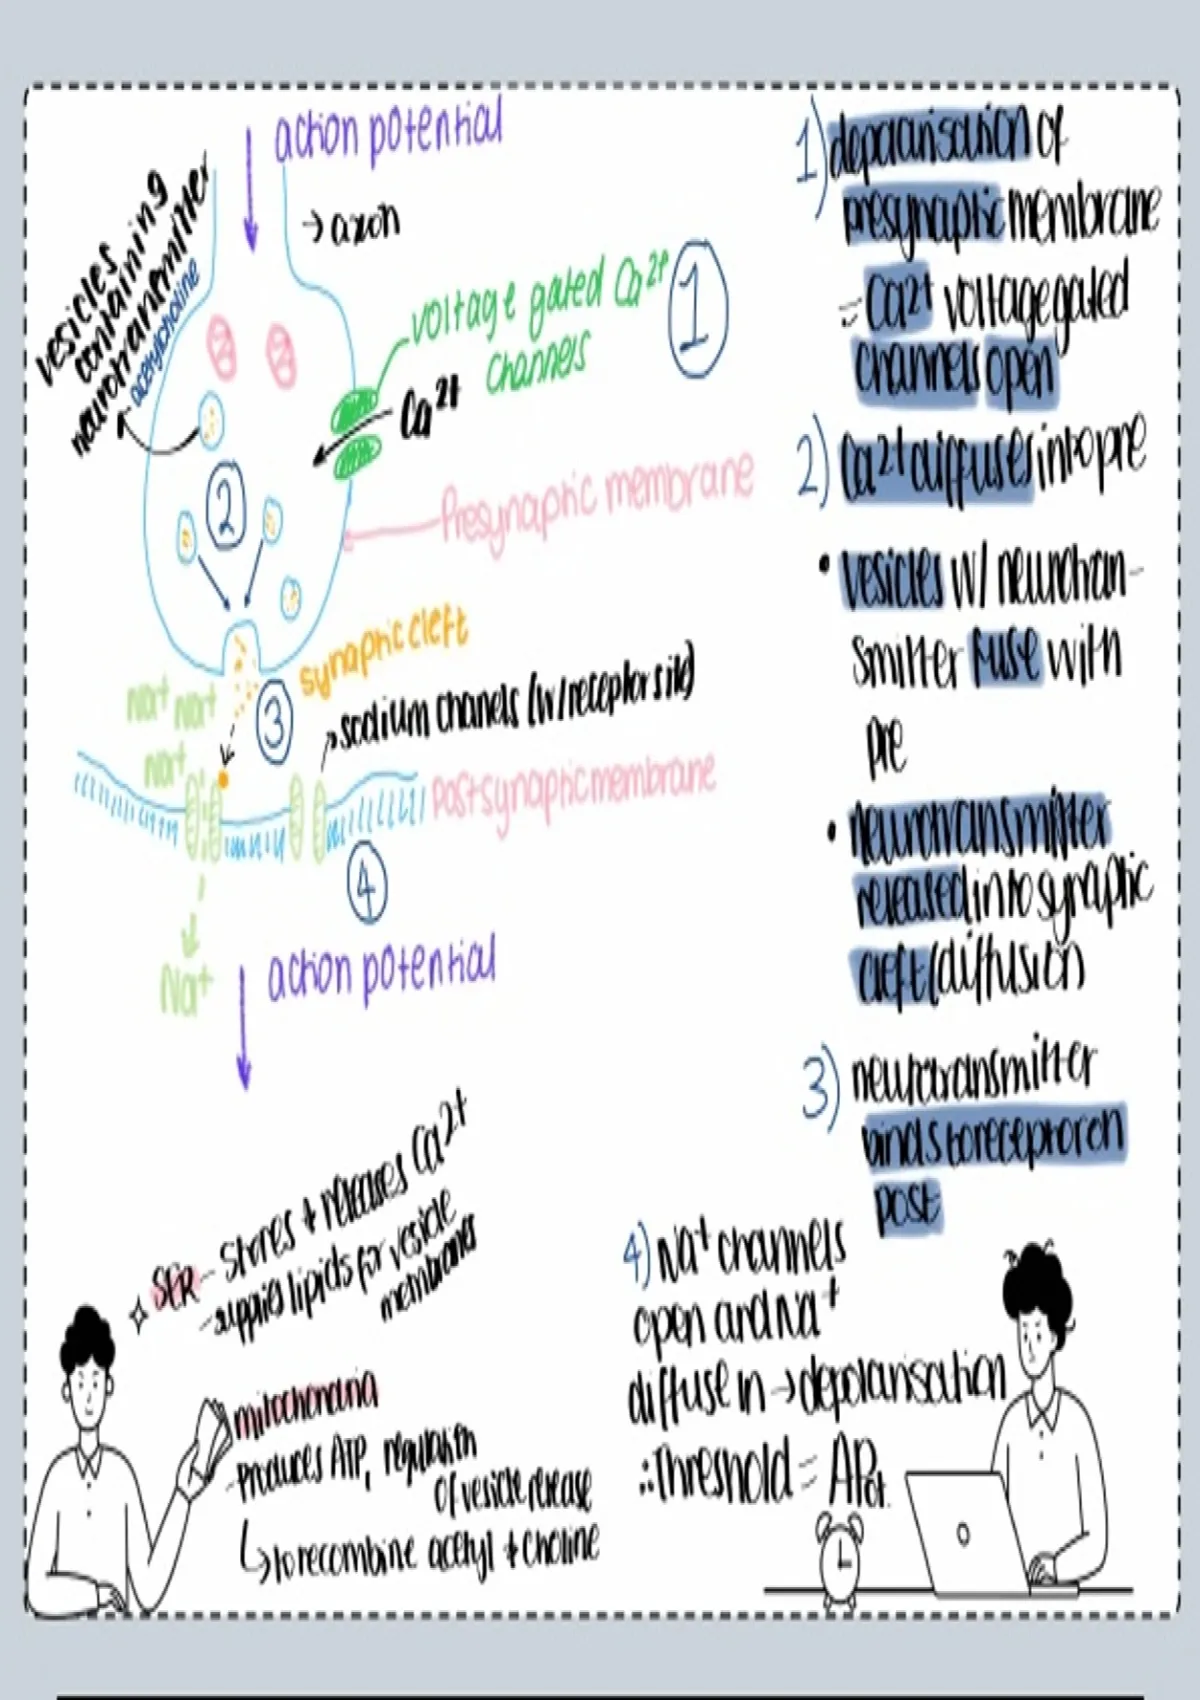 action potential
→ axon
vesicles
containing
neurotransmitter
acetylcholine
voltage gated Ca²⁺
channels
1
Ca²⁺
2
Presynaptic membrane
synaptic cleft
Na⁺ Na⁺
Na⁺
3
sodium chanels (w/receptor site)
Postsynaptic membrane
4
Na⁺
action potential
1) depolarisation of
presynaptic membrane
= Ca2+ voltage gated
channels open
2) Ca2+ diffuses into pre
• vesicles w/ neurotran-
smitter fuse with
pre
• neurotransmitter
released into synaptic
cleft (diffusion)
3) neurotransmitter
binds to receptor on
post
4) Na⁺ channels
open and Na⁺
diffuse in → depolarisation
∴ Threshold = APot.
SER - Stores + releases Ca²⁺
- supplies lipids for vesicle
membranes
mitochondria
- Produces ATP, regulation
of vesicle release
↳ to recombine acetyl + choline